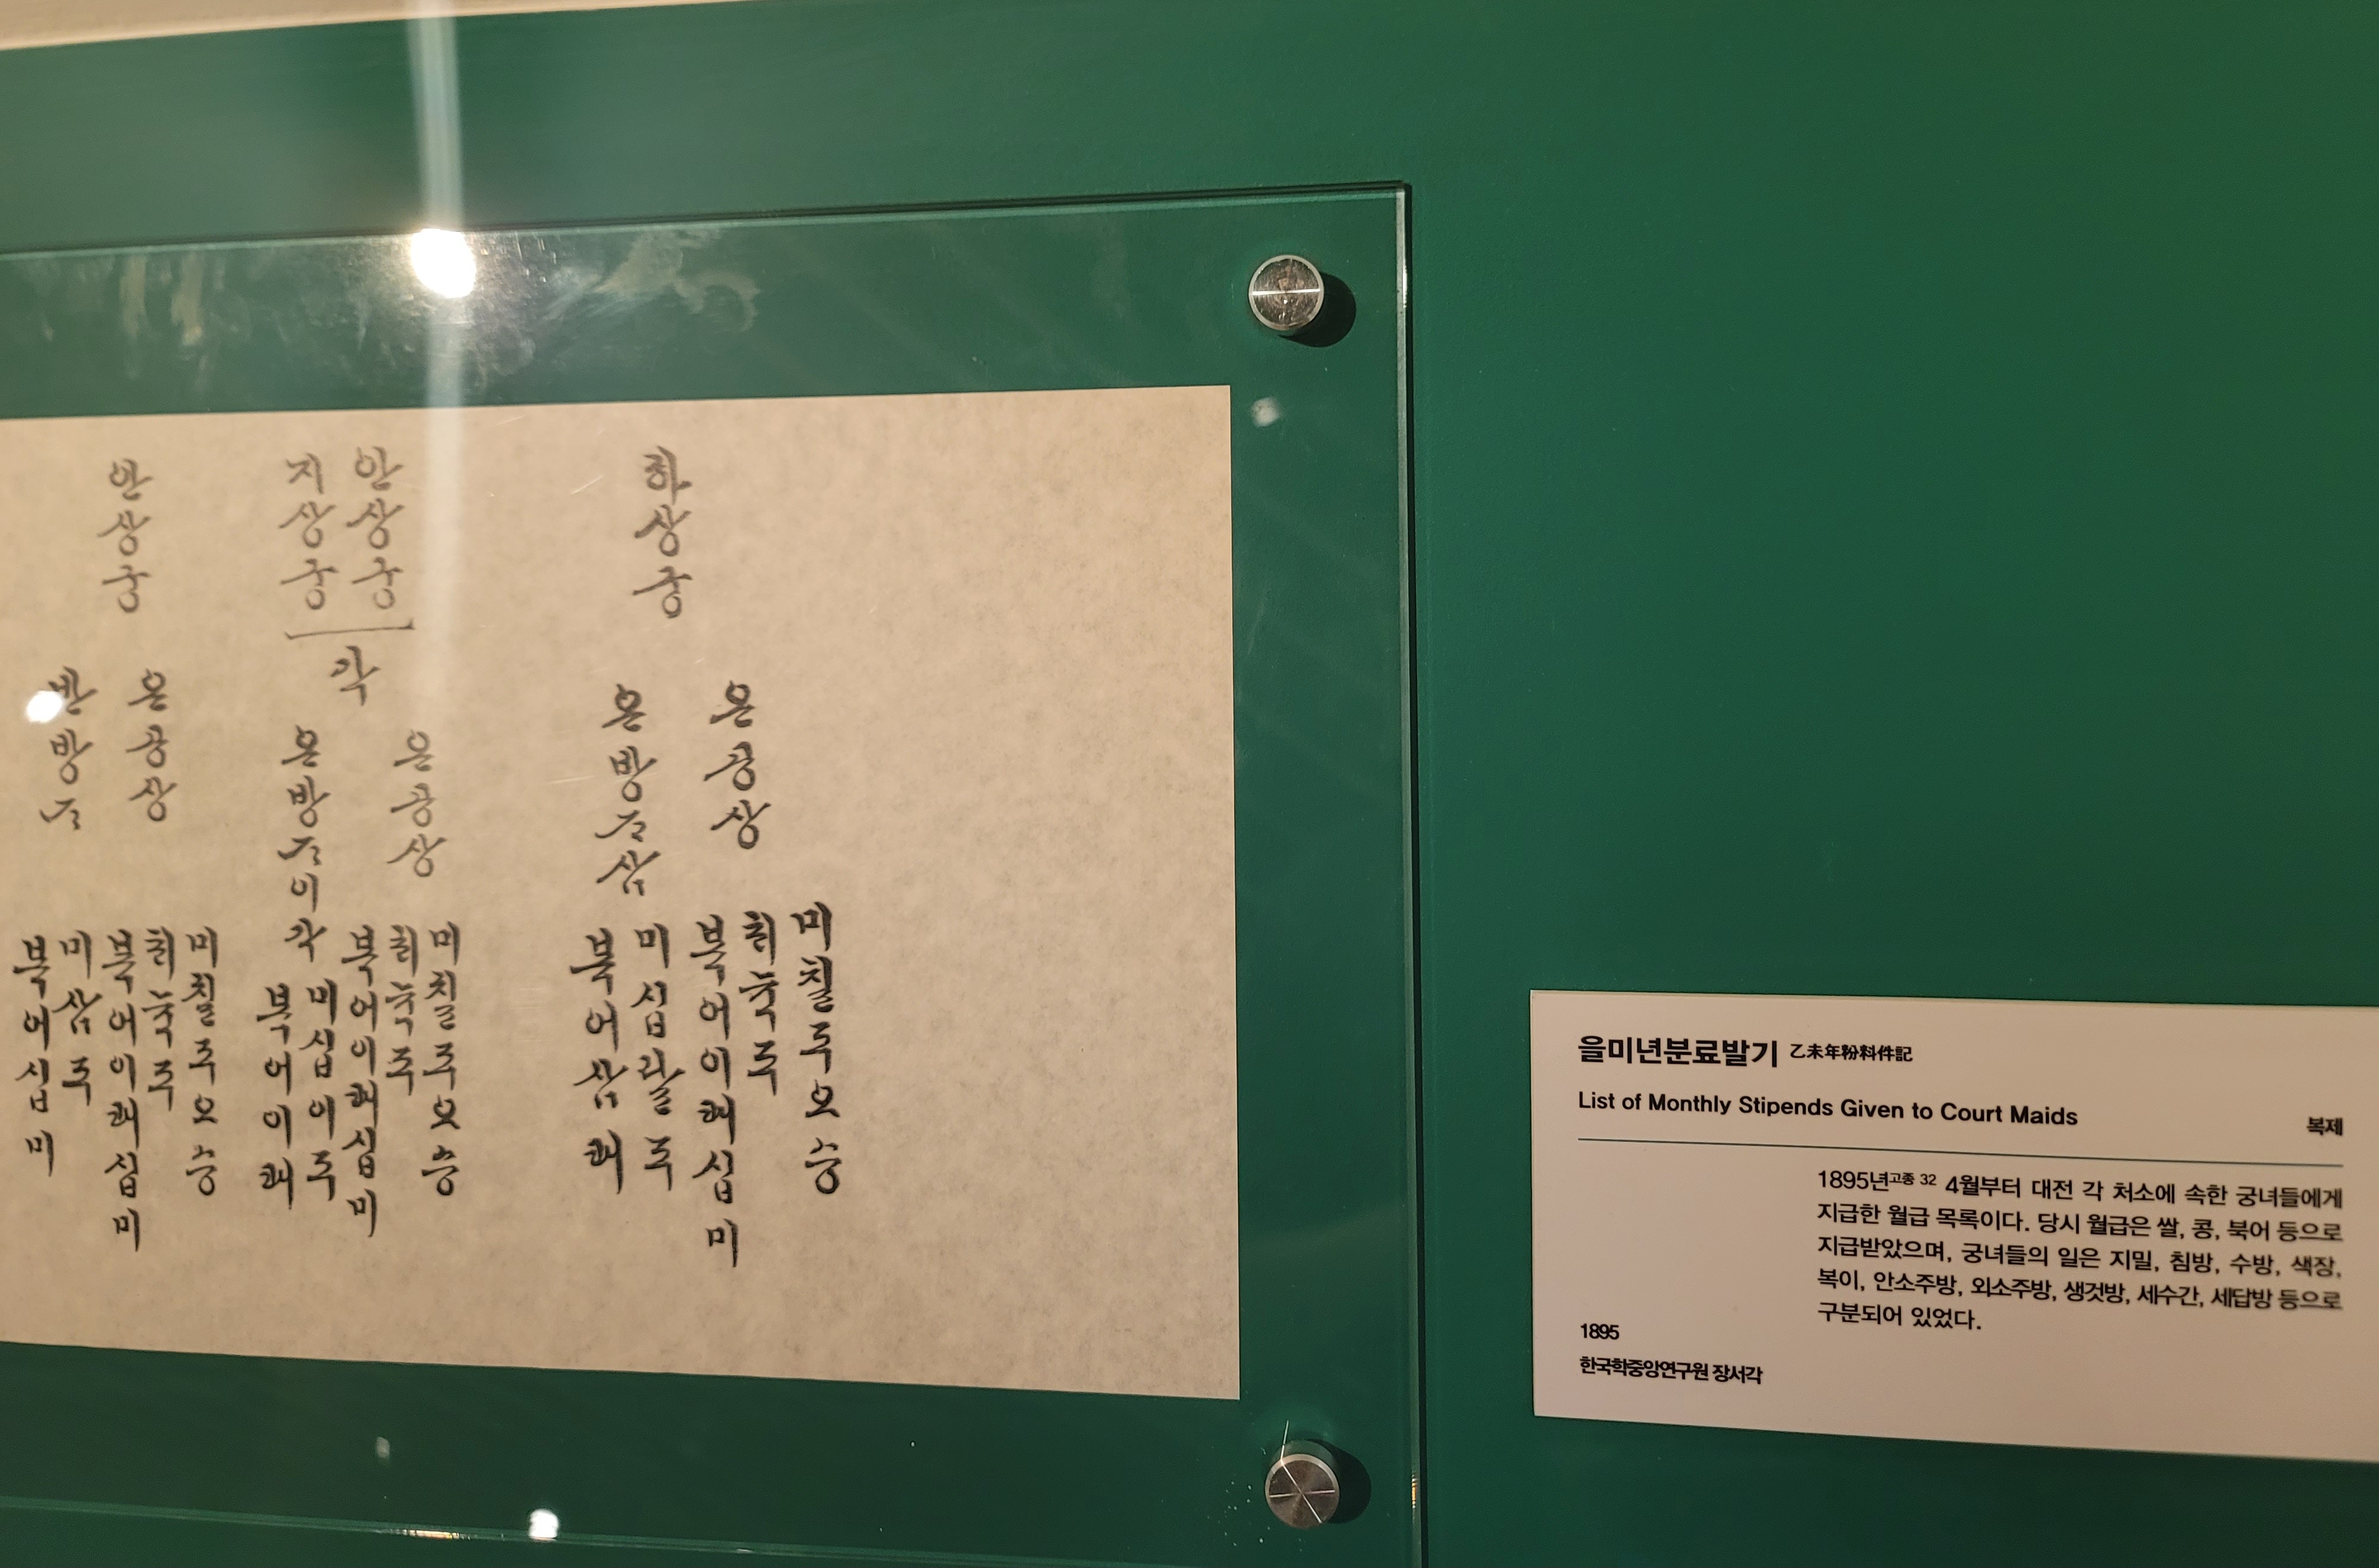 하상궁
온공상
미칠두오승
ᄐᆡ뉵두
북어이쾌십미
온방ᄌᆞ삼
미십팔두
북어삼쾌
안상궁
지상궁
각
온공상
미칠두오승
ᄐᆡ뉵두
북어이쾌십미
온방ᄌᆞ이각
미십이두
북어이쾌
안상궁
온공상
미칠두오승
ᄐᆡ뉵두
북어이쾌십미
반방ᄌᆞ
미삼두
북어십미
을미년분료발기 乙未年粉料件記
List of Monthly Stipends Given to Court Maids
복제
1895년고종 32 4월부터 대전 각 처소에 속한 궁녀들에게
지급한 월급 목록이다. 당시 월급은 쌀, 콩, 북어 등으로
지급받았으며, 궁녀들의 일은 지밀, 침방, 수방, 색장,
복이, 안소주방, 외소주방, 생것방, 세수간, 세답방 등으로
구분되어 있었다.
1895
한국학중앙연구원 장서각